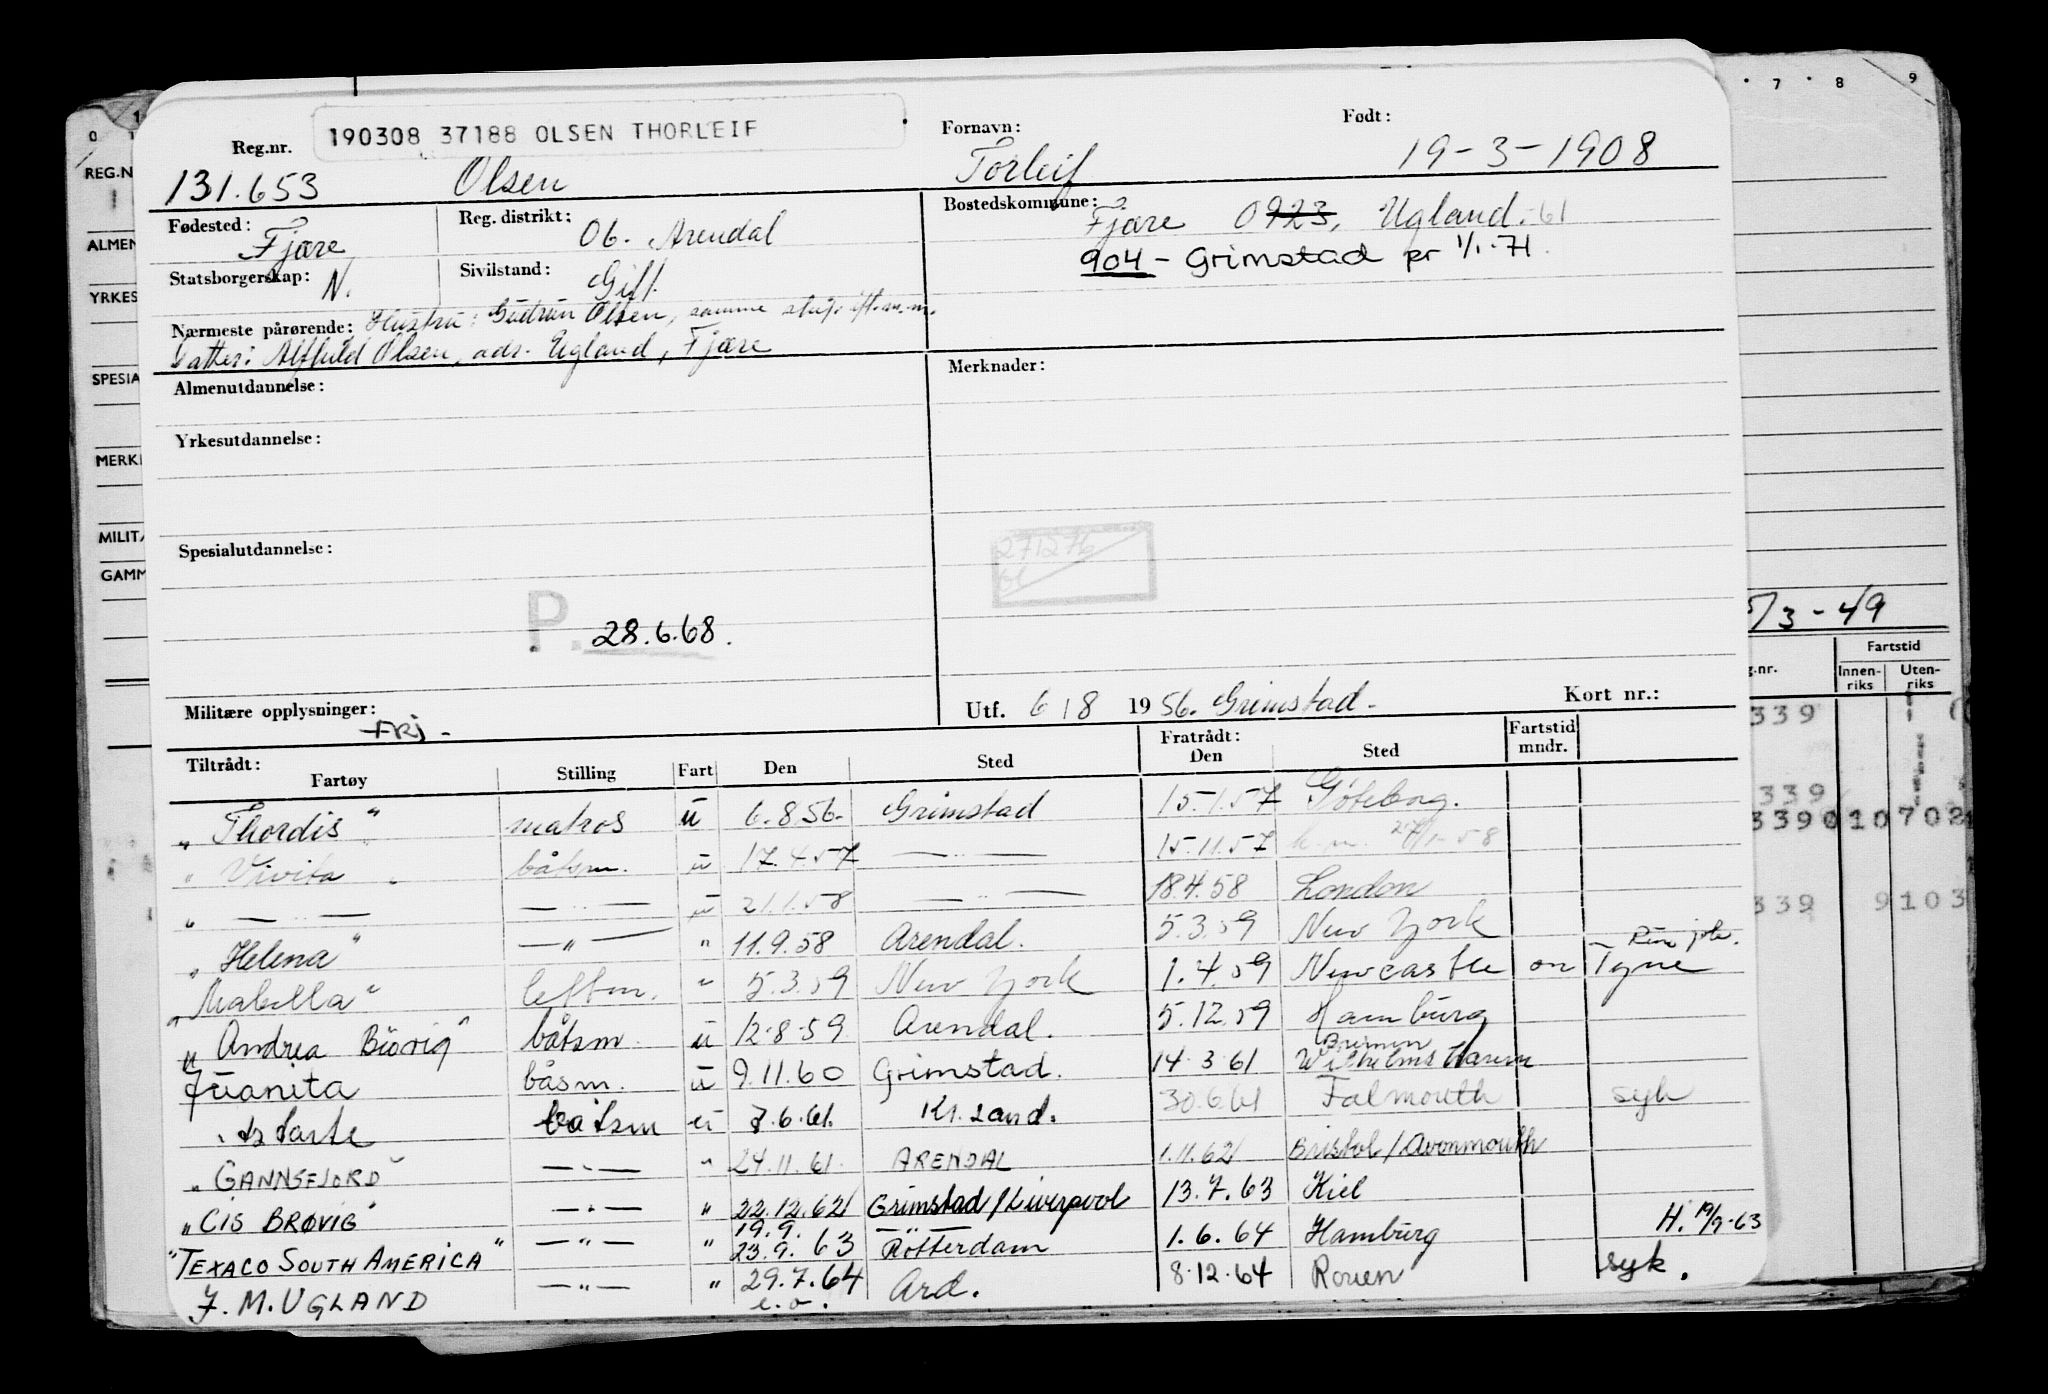 190308 37188 OLSEN THORLEIF
Reg.nr. Fornavn: Født:
131.653 Olsen Torleif 19-3-1908
Fødested: Fjære Reg. distrikt: 06. Arendal Bostedskommune: Fjære 0923, Ugland.-61
904 - Grimstad pr 1/1-71.
Statsborgerskap: N. Sivilstand: Gift.
Nærmeste pårørende: Hustru: Gudrun Olsen, samme
Datter: Alfhild Olsen, adr. Ugland, Fjære
Almenutdannelse: Merknader:
Yrkesutdannelse:
Spesialutdannelse:
271276
P. 28.6.68.
Militære opplysninger: FRJ - Utf. 6/8 1956. Grimstad - Kort nr.:
Tiltrådt: Fratrådt: Fartstid mndr.
Fartøy Stilling Fart Den Sted Den Sted
"Thordis" matros u 6.8.56. Grimstad 15.1.57 Göteborg.
"Vivita" båtsm. u 17.4.57 — " — 15.11.57
" — " — — " — u 21.1.58 — " — 18.4.58 London
"Helena" — " — " 11.9.58 Arendal. 5.3.59 New York
"Mabella" lettm. " 5.3.59 New York 1.4.59 Newcastle on Tyne
"Andrea Brövig" båtsm. u 12.8.59 Arendal. 5.12.59 Hamburg
Juanita båsm. u 9.11.60 Grimstad. 14.3.61 Bremen Wilhelmshaven
"Astarte båtsm u 7.6.61. Kr.sand. 30.6.61 Falmouth syk
"GANNSFJORD" — " — " 24.11.61. ARENDAL 1.11.62 Bristol/Avonmouth
"CIS BRØVIG" — " — " 22.12.62 Grimstad/Liverpool 13.7.63 Kiel
"TEXACO SOUTH AMERICA" — " — " 19.9. 23.9.63 Rotterdam 1.6.64 Hamburg H. 19/9-63
J. M. UGLAND — " — " 29.7.64 e.o. Ard. 8.12.64 Rouen syk.
0 1 7 8 9
REG.N
ALMEN
YRKES
SPESIA
MERK
MILIT
GAMM
/3-49
g.nr. Fartstid
Innen-riks Uten-riks
339
339
339010702
339 9103